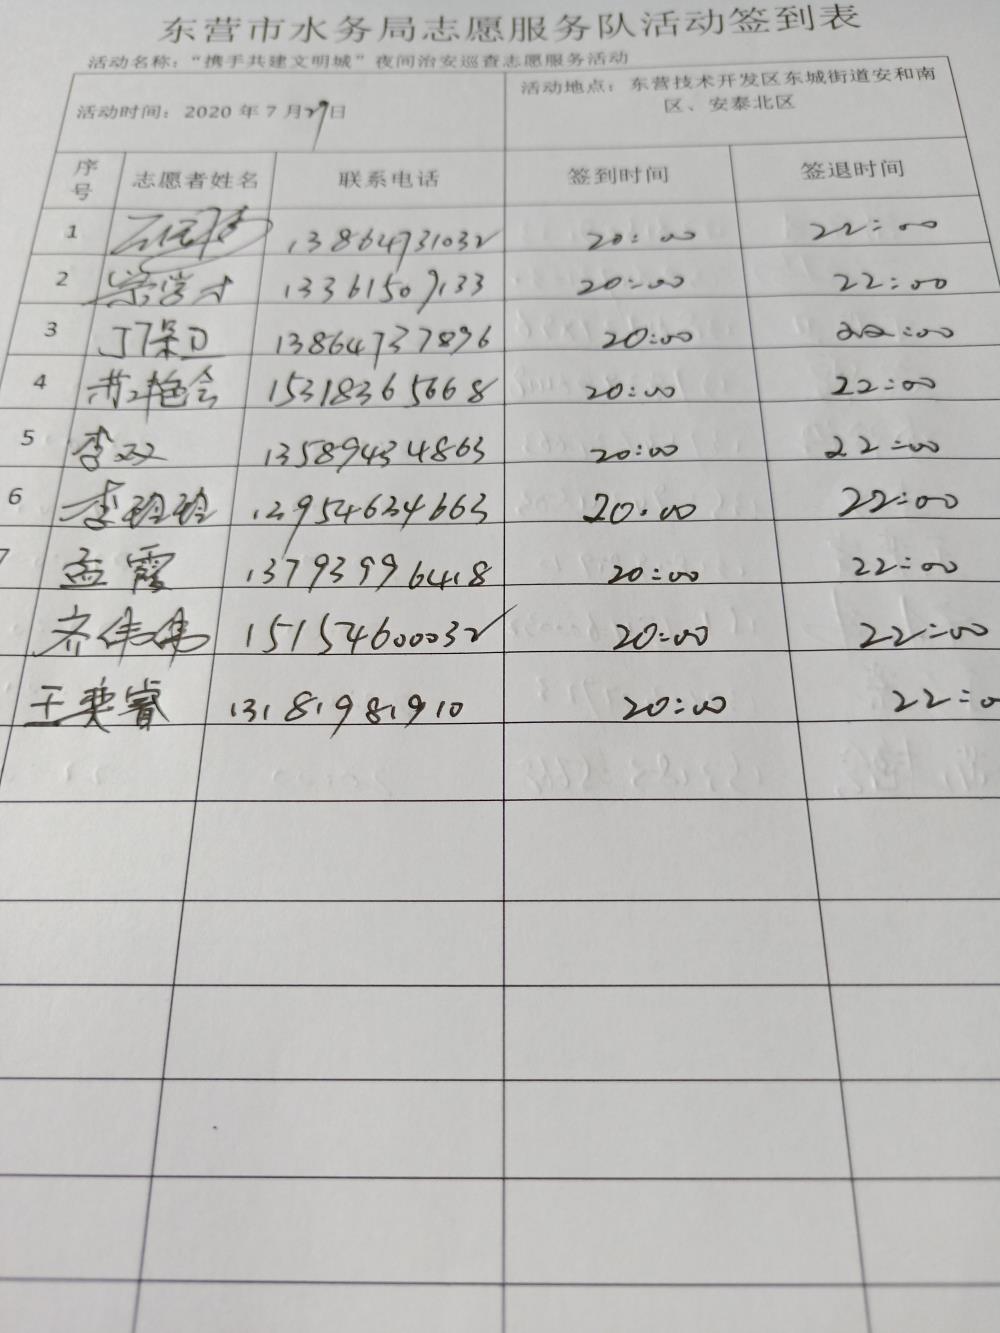 东营市水务局志愿服务队活动签到表
活动名称：“携手共建文明城”夜间治安巡查志愿服务活动
活动时间：2020 年 7 月29日 活动地点：东营技术开发区东城街道安和南
区、安泰北区
序号 志愿者姓名 联系电话 签到时间 签退时间
1 13864731032 20:00 22:00
2 13361509133 20:00 22:00
3 丁保卫 13864737896 20:00 22:00
4 15318365668 20:00 22:00
5 李双 13589434863 20:00 22:00
6 李玲玲 20:00 22:00
孟霞 13793996418 20:00 22:00
齐伟伟 15154600032 20:00 22:00
王奕睿 13181981910 20:00 22:0